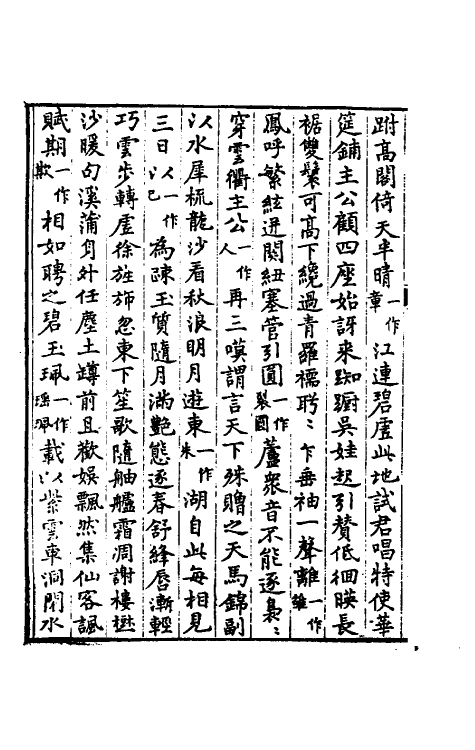 跗高閣倚天半晴一作章江連碧虛此地試君唱特使華
筵鋪主公顧四座始訝来踟蹰吳娃起引賛低徊暎長
裾雙鬟可高下繞過青羅襦盻〻乍垂袖一聲離一作雛
鳳呼繁絃迸関紐塞管引圓一作裂圓蘆衆音不能逐裊〻
穿雲衢主公一作人再三嘆謂言天下殊贈之天馬錦副
以水犀梳龍沙看秋浪明月遊東一作朱湖自此每相見
三日以一作以已為踈玉質隨月滿艶態逐春舒絳唇漸輕
巧雲步轉虛徐旌斾忽東下笙歌隨舳艫霜凋謝樓樹
沙暖句溪蒲身外任塵土罇前且歡娛飄然集仙客諷
賦期一作欺相如聘之碧玉珮一作瑤珮載以紫雲車洞閉水